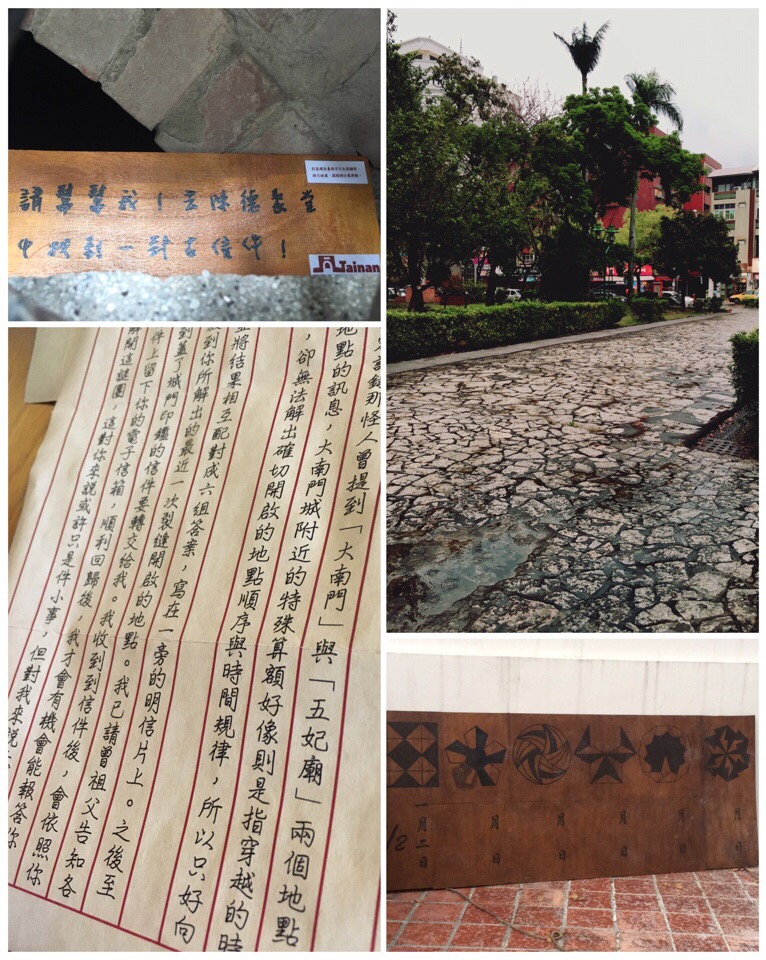 請幫幫我！去陳德聚堂
中找到一對古信件！
Tainan
錄那怪人曾提到「大南門」與「五妃廟」兩個地點
地點的訊息，大南門城附近的特殊算額好像則是指穿越的時
，卻無法解出確切開啟的地點順序與時間規律，所以只好向
並將結果相互配對成六組答案，寫在一旁的明信片上。之後至
到你所解出的最近一次裂縫開啟的地點。我已請曾祖父告知各
到蓋了城門印鑑的信件要轉交給我。我收到信件後，會依照你
件上留下你的電子信箱，順利回歸後，我才會有機會能報答你
解開這謎團，這對你來說或許只是件小事，但對我來說
1/2
一月二日
月 日
月 日
月 日
月 日
月 日